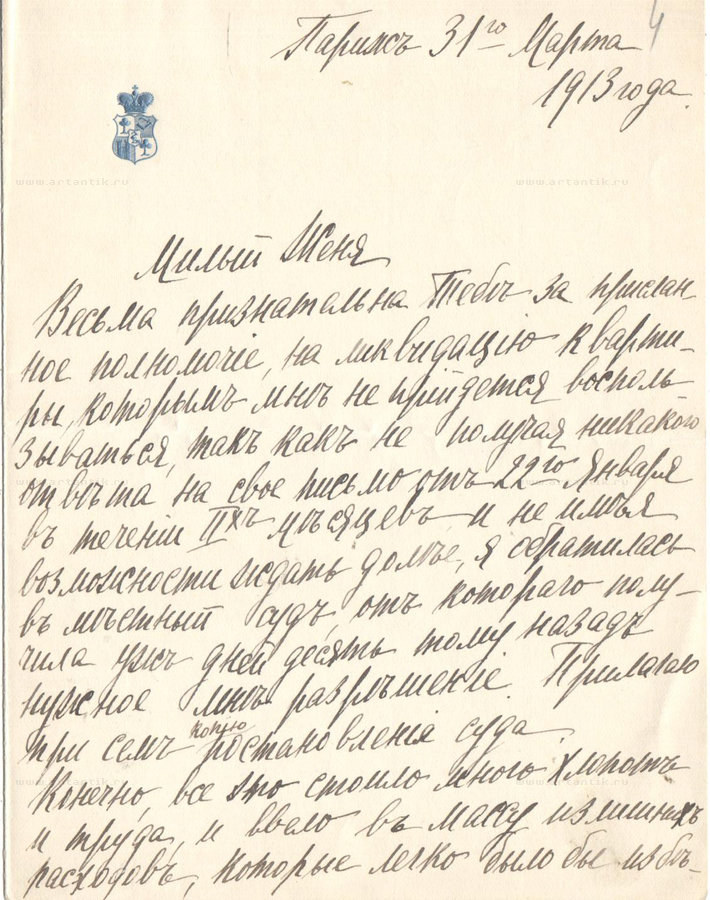 4
Парижъ 31го Марта
1913 года.
www.artantik.ru www.artantik.ru
Милый Женя
Весьма признательна Тебѣ за прислан-
ное полномочіе, на ликвидацію кварти-
ры, которымъ мнѣ не прійдется восполь-
зываться, такъ какъ не получая никакого
отвѣта на свое письмо отъ 22го Января
въ теченіи IIхъ мѣсяцевъ и не имѣя
возможности ждать долѣе, я обратилась
въ мѣстный судъ, отъ котораго полу-
чила ужъ дней десять тому назадъ
нужное мнѣ разрѣшеніе. Прилагаю
при семъ копію постановленія суда.
Конечно, все это стоило много хлопотъ
и труда, и ввело въ массу излишнихъ
расходовъ, которые легко было бы избѣ-